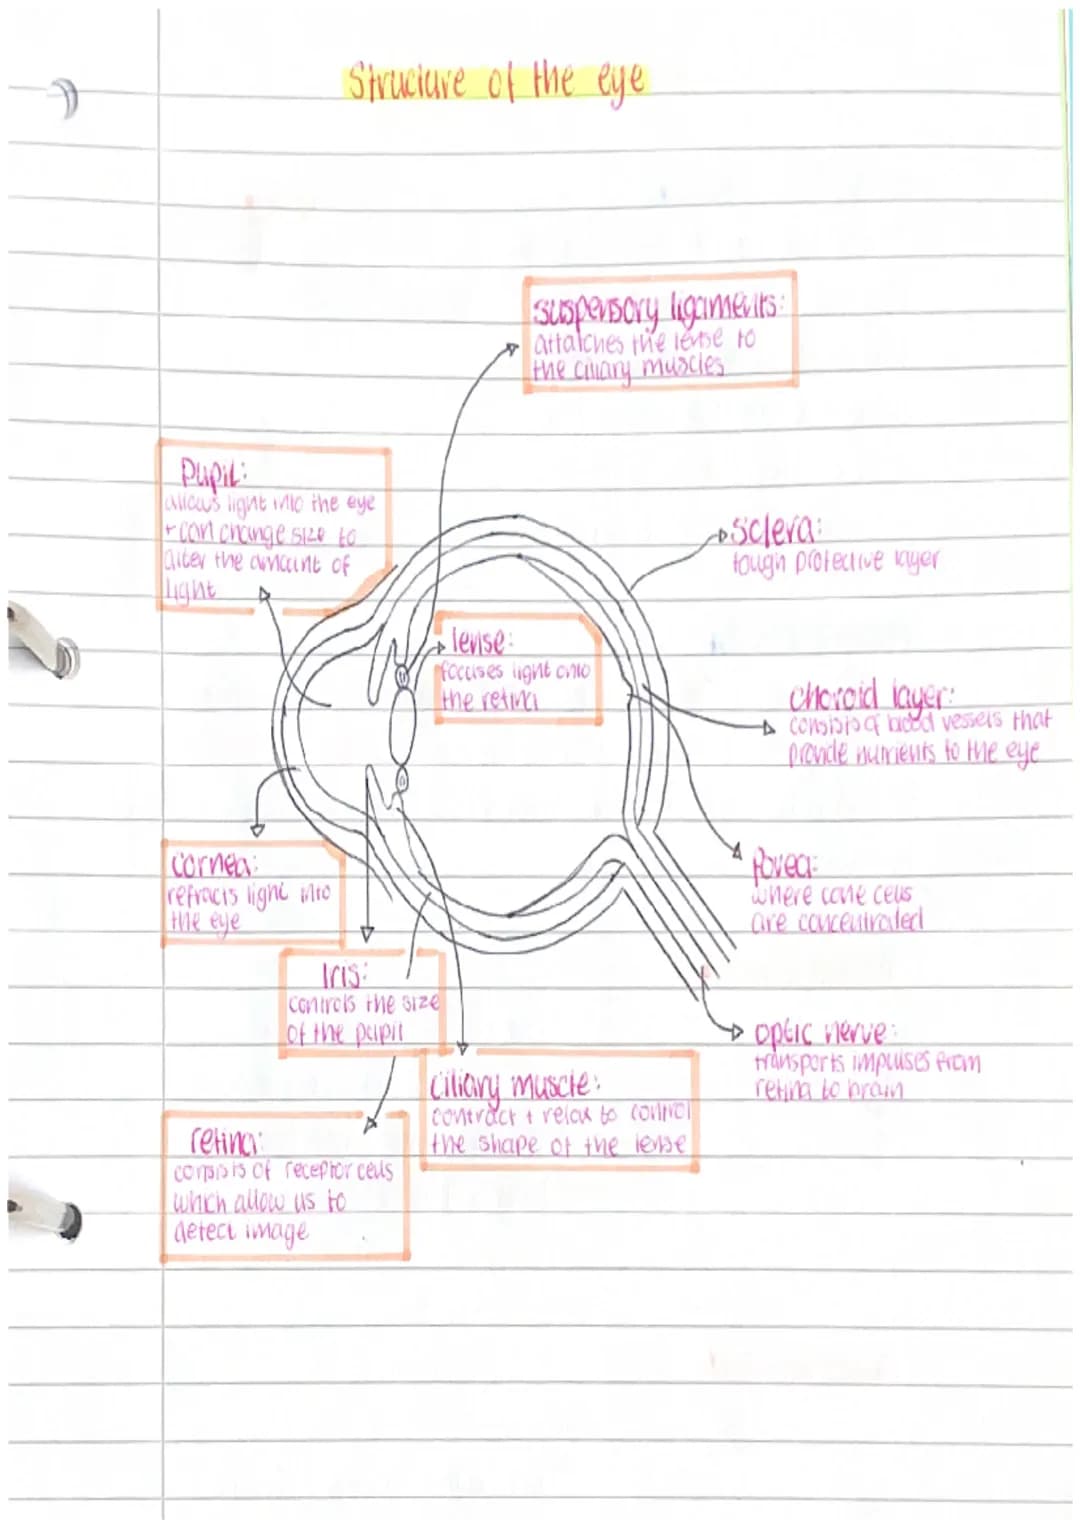 Structure of the eye
suspensory ligaments:
attatches the lense to
the ciliary muscles
Pupil:
allows light into the eye
+ can change size to
alter the amount of
light
sclera:
tough protective layer
lense:
focuses light onto
the retina
choroid layer:
consists of blood vessels that
provide nutrients to the eye
cornea:
refracts light into
the eye
fovea:
where cone cells
are concentrated
Iris:
controls the size
of the pupil
optic nerve:
transports impulses from
retina to brain
ciliary muscle:
contract + relax to control
the shape of the lense
retina:
consists of receptor cells
which allow us to
detect image